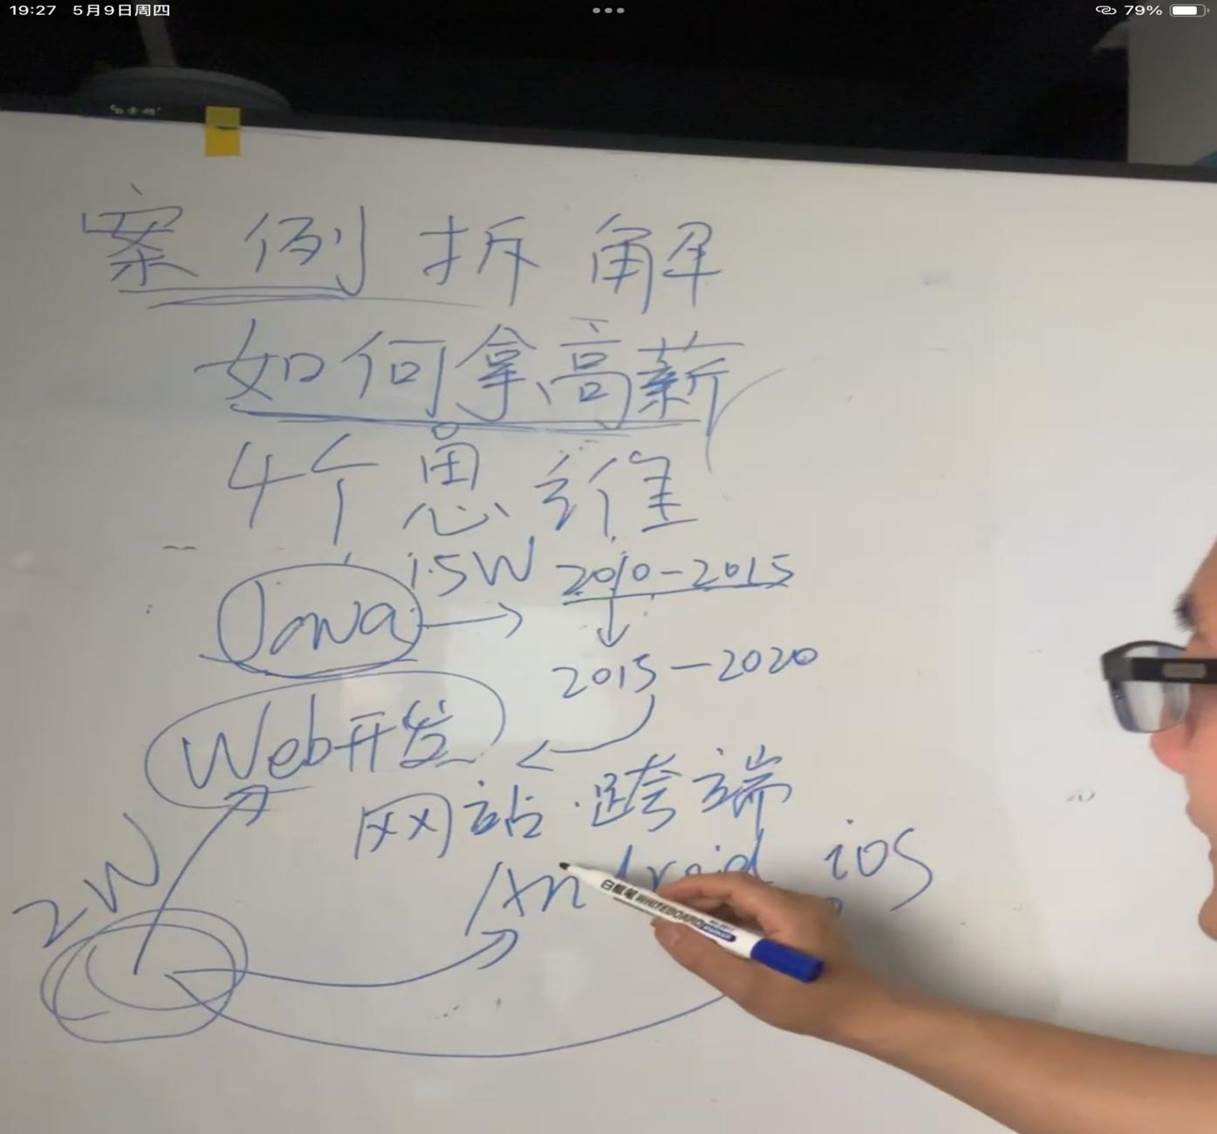 19:27 5月9日周四
79%
案例拆解
如何拿高薪
4个思维
1.5W 2010-2015
Java
2015-2020
Web开发
网站·跨端
2W
Android iOS
白板笔 WHITEBOARD